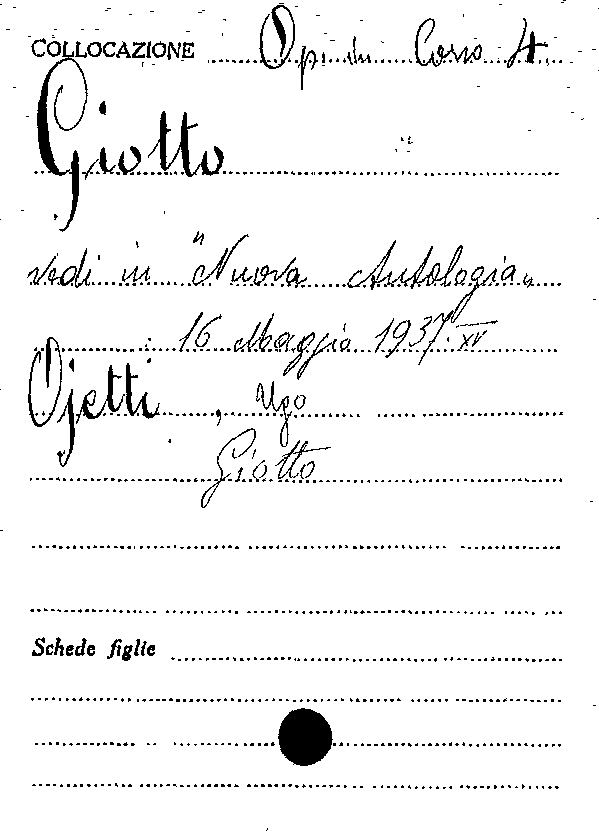 COLLOCAZIONE Op. in Corso 4.
Giotto
vedi in "Nuova Antologia„
16 Maggio 1937. XV
Ojetti, Ugo
Giotto
Schede figlie